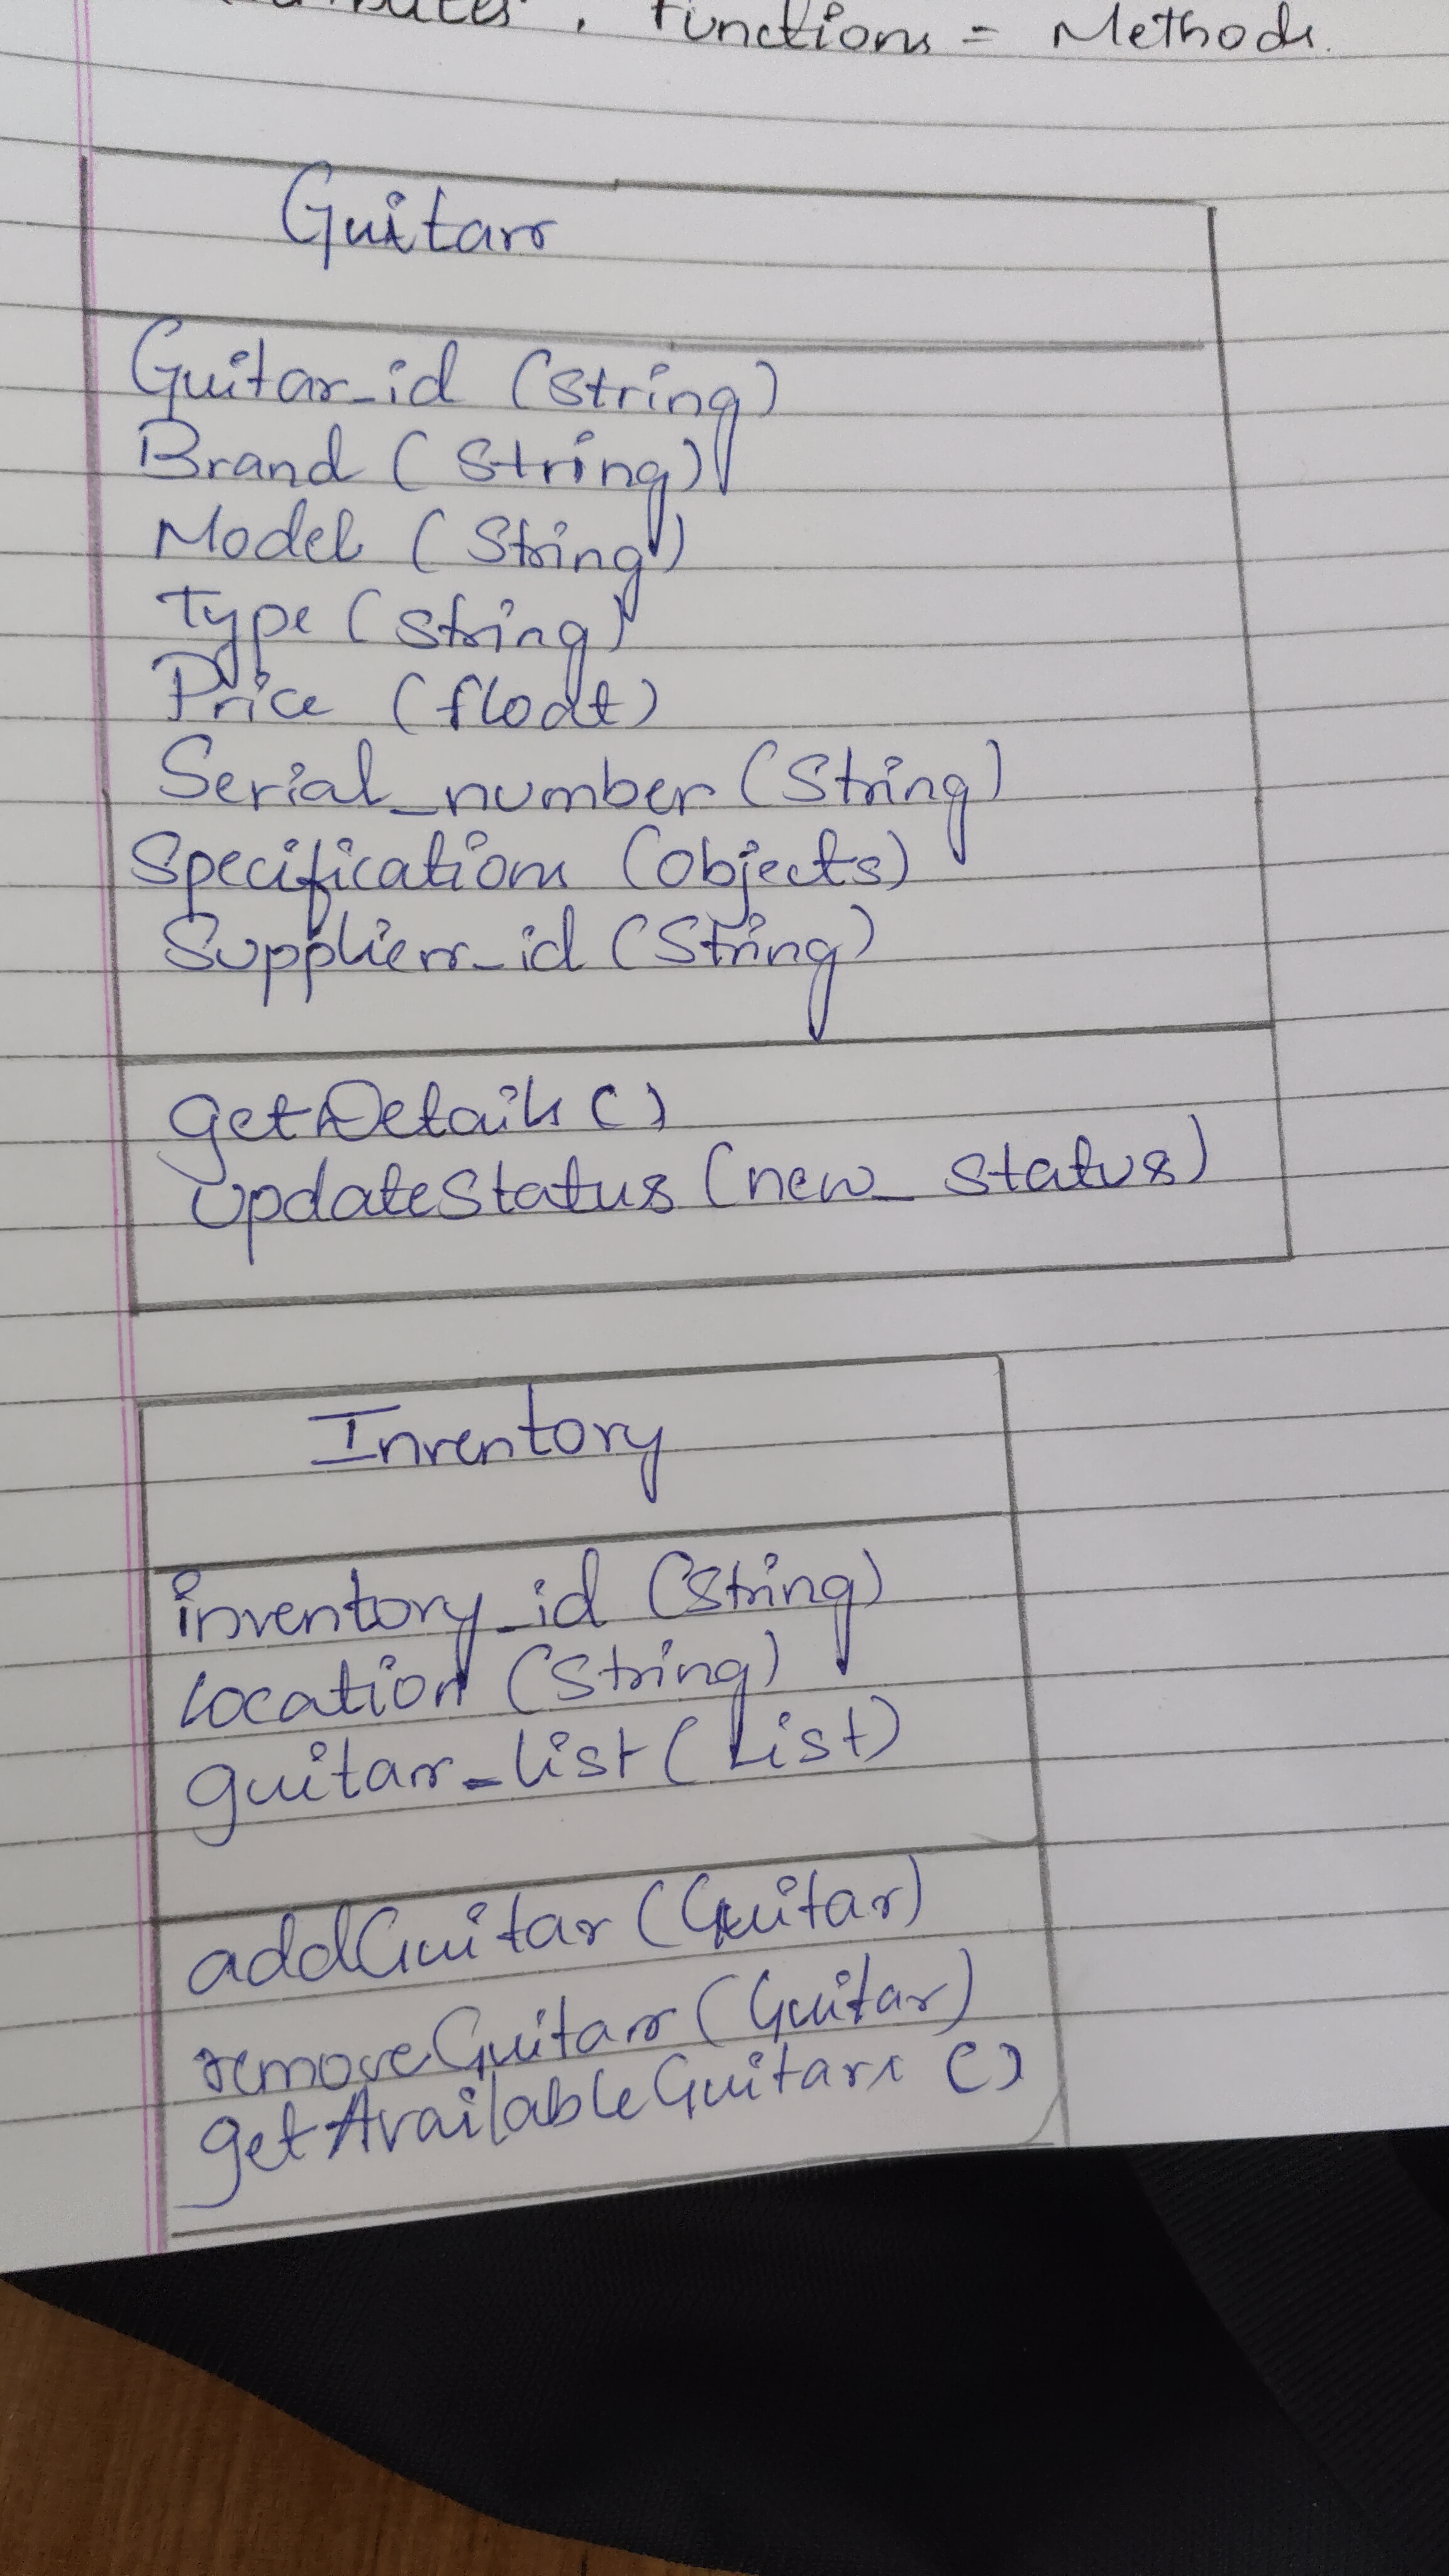 Functions = Methods.
Guitar
Guitar_id (String)
Brand (String)
Model (String)
Type (String)
Price (float)
Serial_number (String)
Specifications (Objects)
Supplier_id (String)
getDetails ()
updateStatus (new_status)
Inventory
inventory_id (String)
location (String)
guitar_list (List)
addGuitar (Guitar)
removeGuitar (Guitar)
getAvailableGuitars ()